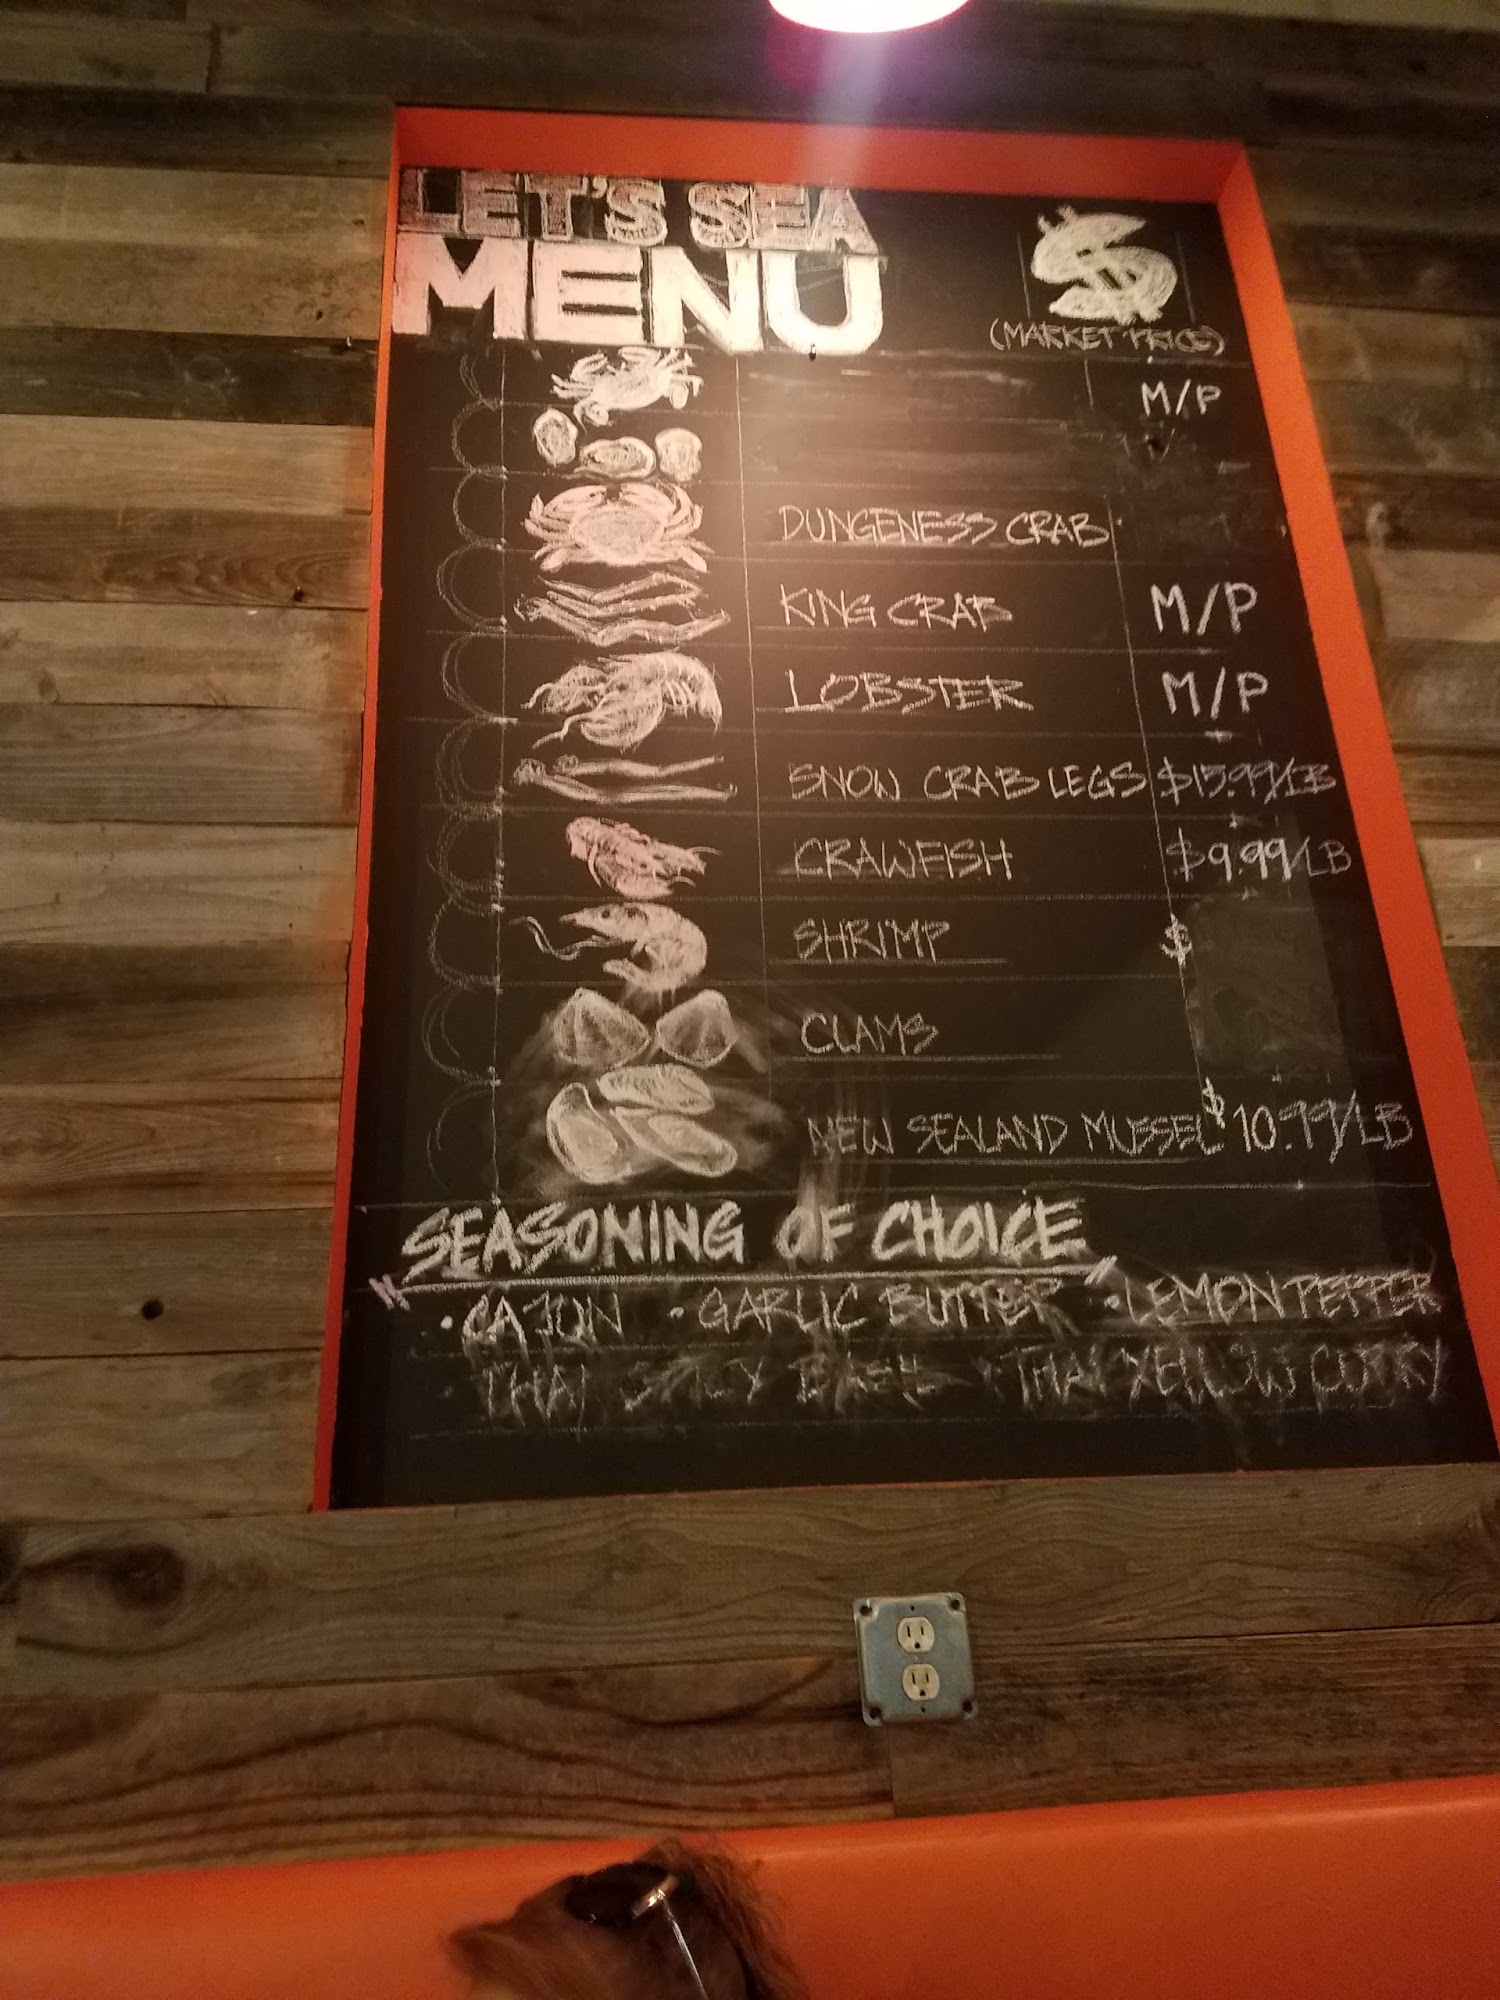 LET'S SEA
MENU
$
(MARKET PRICE)
M/P
DUNGENESS CRAB
KING CRAB M/P
LOBSTER M/P
SNOW CRAB LEGS $15.99/LB
CRAWFISH $9.99/LB
SHRIMP $
CLAMS
NEW SEALAND MUSSEL $10.99/LB
SEASONING OF CHOICE
• CAJUN • GARLIC BUTTER • LEMON PEPPER
• THAI SPICY BASIL • THAI YELLOW CURRY